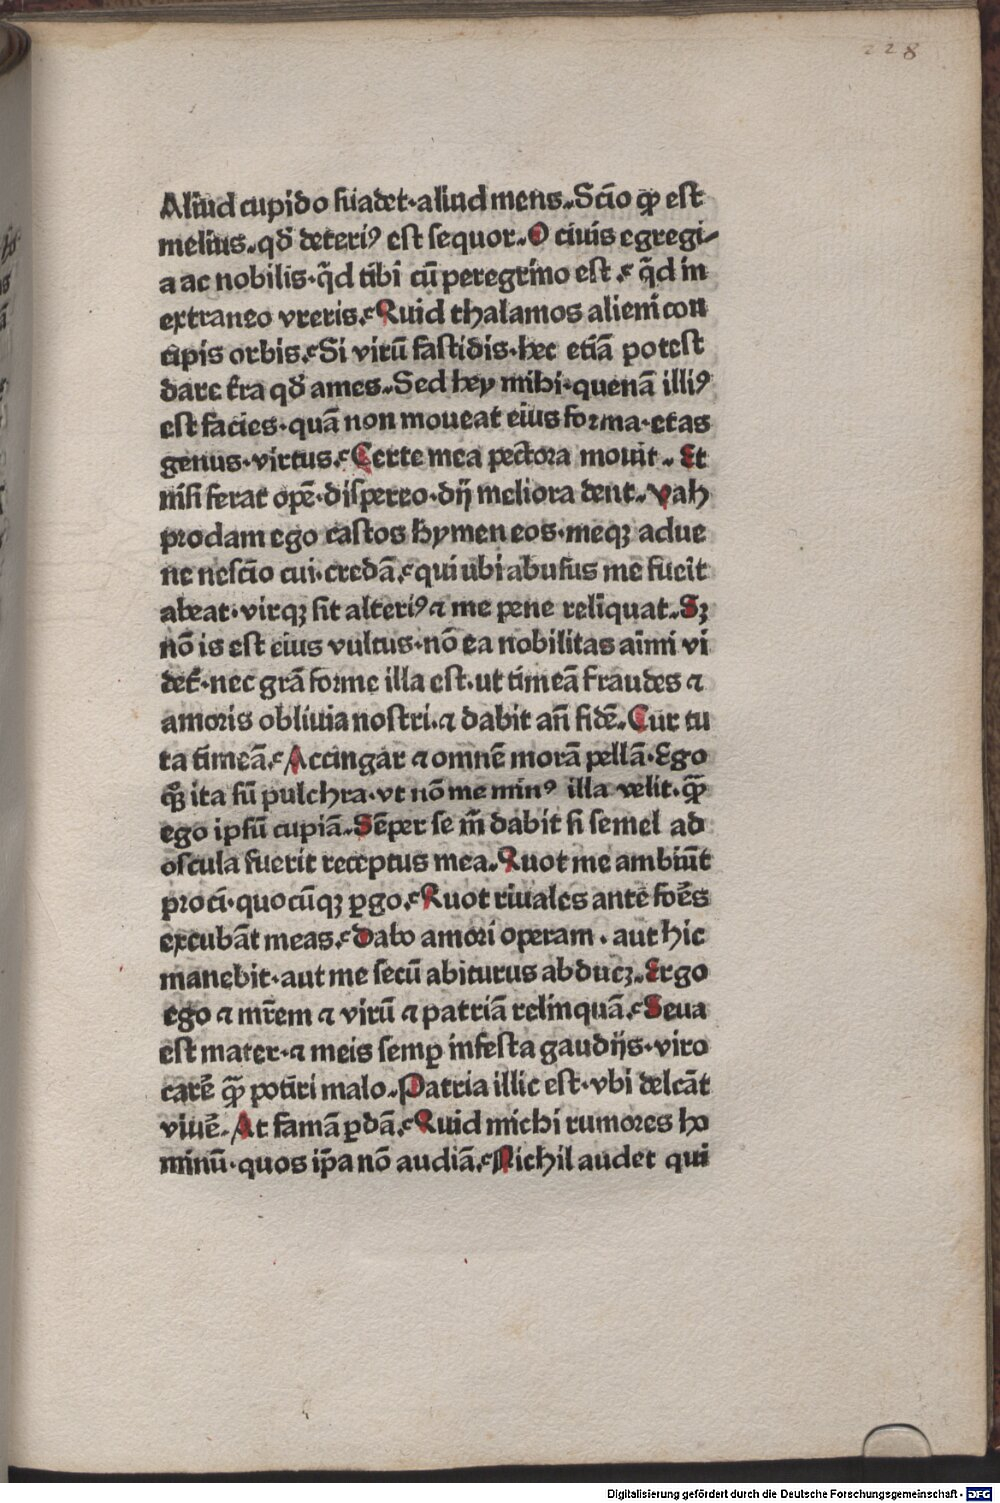 228
Aliud cupido suadet·aliud mens.Scio qꝫ est
melius.qd̄ deteriꝰ est sequor.O ciuis egregi-
a ac nobilis·qͥd tibi cū peregrino est? qͥd in
extraneo vreris?Quid thalamos alieni con
cipis orbis?Si virū fastidis·hec etiā potest
dare t̄ra qd̄ ames.Sed hey mihi·quenā illiꝰ
est facies·quā non moueat eius forma·etas
genus·virtus?Certe mea pectora mouit. Et
nisi ferat opē·dispereo·dij meliora dent.Vah
prodam ego castos hymeneos·meqꝫ adue
ne nescio cui·credā?qui ubi abusus me fueīt
abeat·virqꝫ sit alteriꝰ ⁊ me pene reliquat.Sꝫ
nō is est eius vultus·nō ea nobilitas aīmi vi
det̄·nec grā forme illa est·ut timeā fraudes ⁊
amoris obliuia nostri.⁊ dabit an̄ fidē.Cur tu
ta timeā?Accingar ⁊ omnē morā pellā·Ego
qͣꝫ ita sū pulchra·vt nō me minꝰ illa velit·qͣꝫ
ego ipsū cupiā.Sēper se m̄ dabit si semel ad
oscula fuerit receptus mea.Quot me ambiūt
proci·quocūqꝫ ꝑgo?Quot riuales ante foēs
excubāt meas?dabo amori operam·aut hic
manebit·aut me secū abiturus abducꝫ.Ergo
ego ⁊ mr̄em ⁊ virū ⁊ patriā relinquā?Seua
est mater·⁊ meis semꝑ infesta gaudijs·viro
carē qͣꝫ potiri malo.Patria illic est·vbi delcāt
viuē.At famā ꝑdā?Quid michi rumores ho
minū·quos ip̄a nō audiā?Nichil audet qui
Digitalisierung gefördert durch die Deutsche Forschungsgemeinschaft - DFG